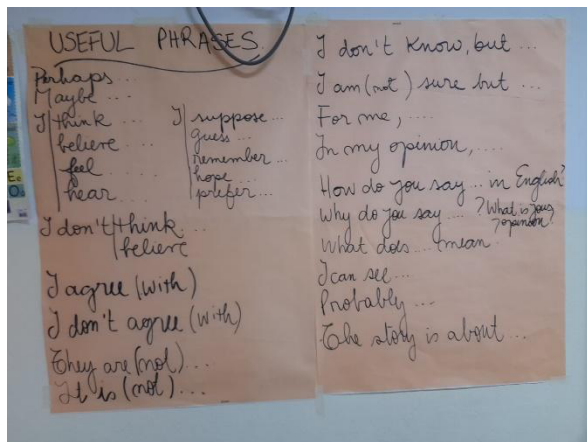 USEFUL PHRASES
Perhaps ...
Maybe ....
I think ....
believe ....
feel ....
hear ....
I suppose ...
guess ...
remember ...
hope ...
prefer ...
I don't think ...
believe
I agree (with)
I don't agree (with)
They are (not) ...
It is (not) ...
I don't know, but ...
I am (not) sure but ...
For me, ....
In my opinion, ....
How do you say ... in English?
Why do you say ... ?
What is your opinion?
What does ... mean
I can see ...
Probably ...
The story is about ...
Ee